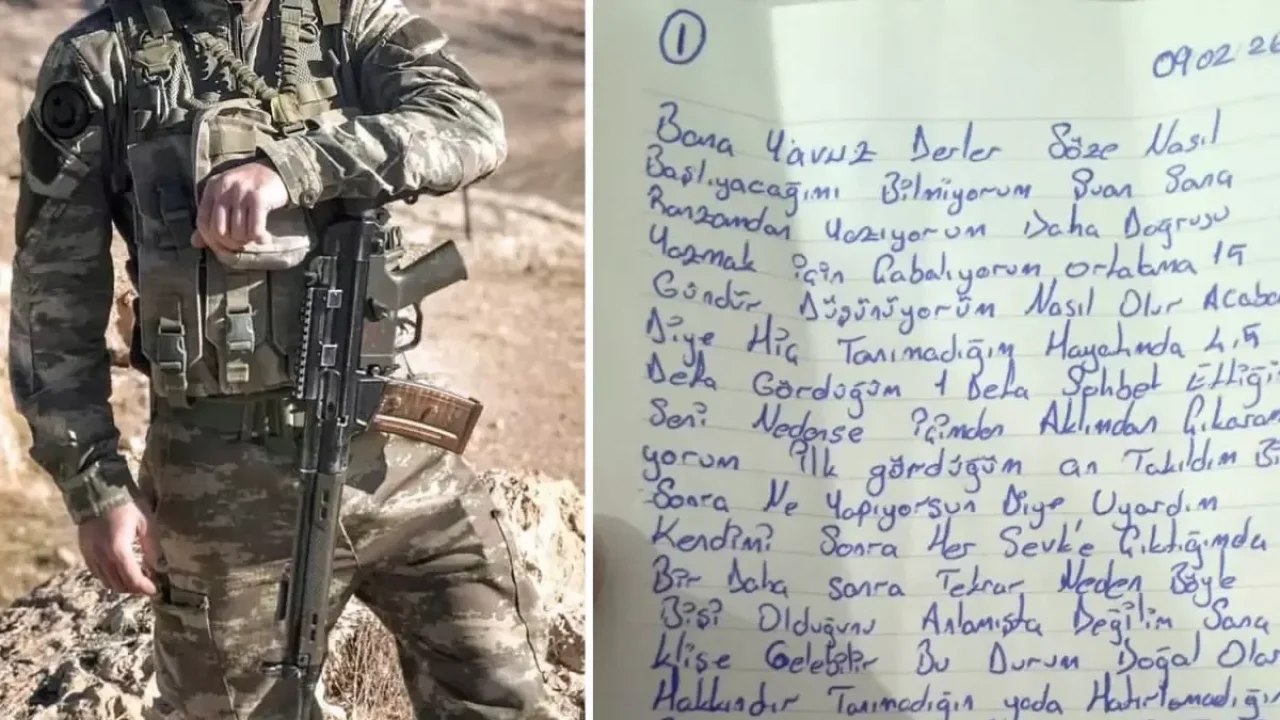 1
09.02.26
Bana Yavuz Derler Söze Nasıl
Başlıyacağımı Bilmiyorum Şuan Sana
Ranzamdan Yazıyorum Daha Doğrusu
Yazmak için Çabalıyorum ortalama 15
Gündür Düşünüyorum Nasıl Olur Acaba
Diye Hiç Tanımadığım Hayatında 4,5
Defa Gördüğüm 1 Defa Sohbet Ettiği
Seni Nedense içimden Aklımdan Çıkaram
yorum ilk gördüğüm an Takıldım Bi
Sonra Ne Yapıyorsun Diye Uyardım
Kendimi Sonra Her Sevk'e Çıktığımda
Bir Daha sonra Tekrar Neden Böyle
Bişi Olduğunu Anlamışta Değilim Sana
Klişe Gelebilir Bu Durum Doğal Olar
Hakkındır Tanımadığın yada Hatırlamadığın